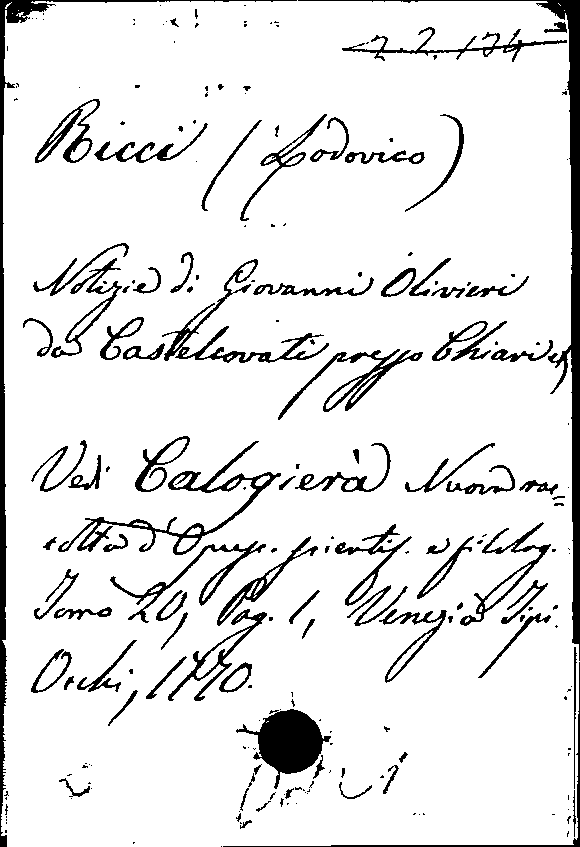 2.2.134
Ricci (Lodovico)
Notizie di Giovanni Olivieri
da Castelcovati presso Chiari
Vedi Calogierà Nuova rac=
colta d'Opusc. scientif. e filolog.
Tomo 20, Pag. 1, Venezia Tipi
Occhi, 1770.